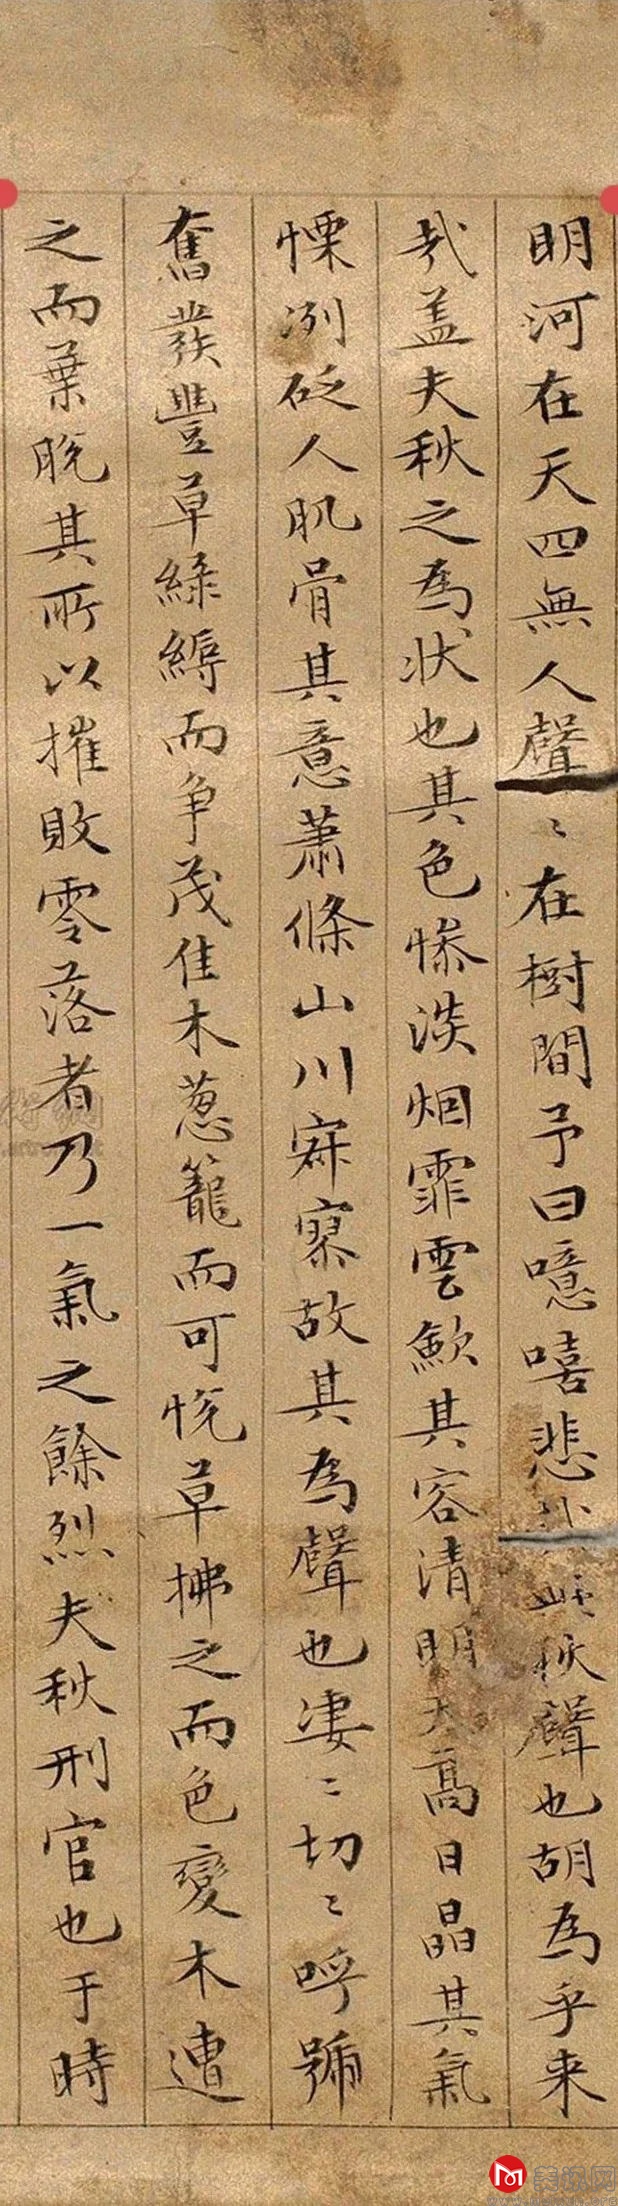 明河在天四無人聲〻在樹間予曰噫嘻悲此秋聲也胡為乎来
㢤盖夫秋之為状也其色惨淡烟霏雲歛其容清明天高日晶其氣
慄冽砭人肌骨其意蕭條山川寂寥故其為聲也凄〻切〻呼號
奮發豐草綠縟而争茂佳木葱籠而可悦草拂之而色變木遭
之而葉脱其所以摧敗零落者乃一氣之餘烈夫秋刑官也于時
美术网